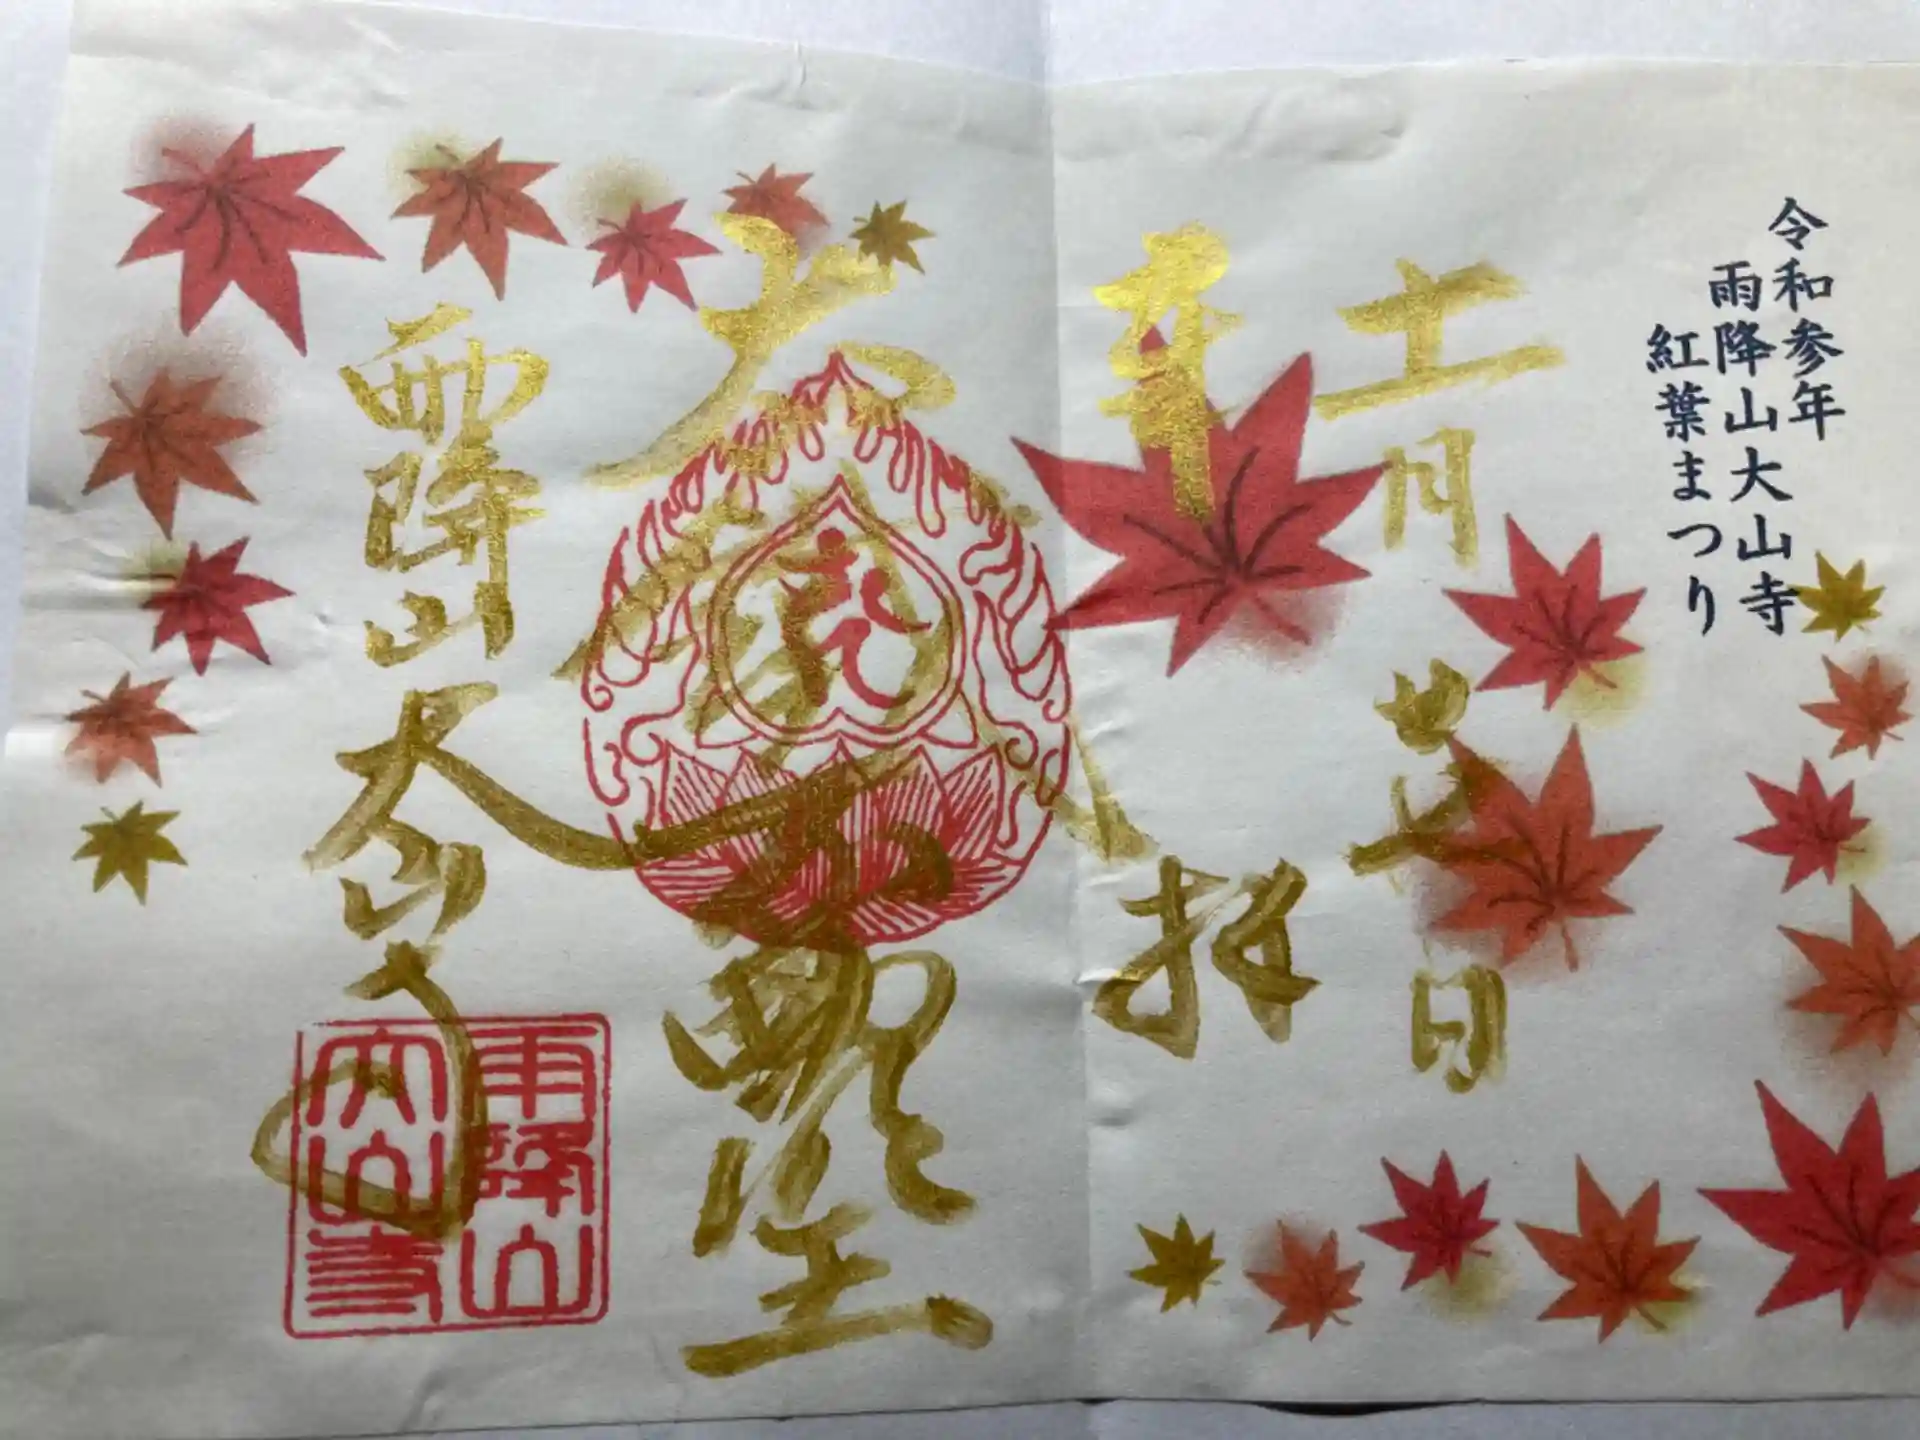 令和参年
雨降山大山寺
紅葉まつり
十一月廿七日
奉拝
雨降山大山寺
雨降山
大山寺